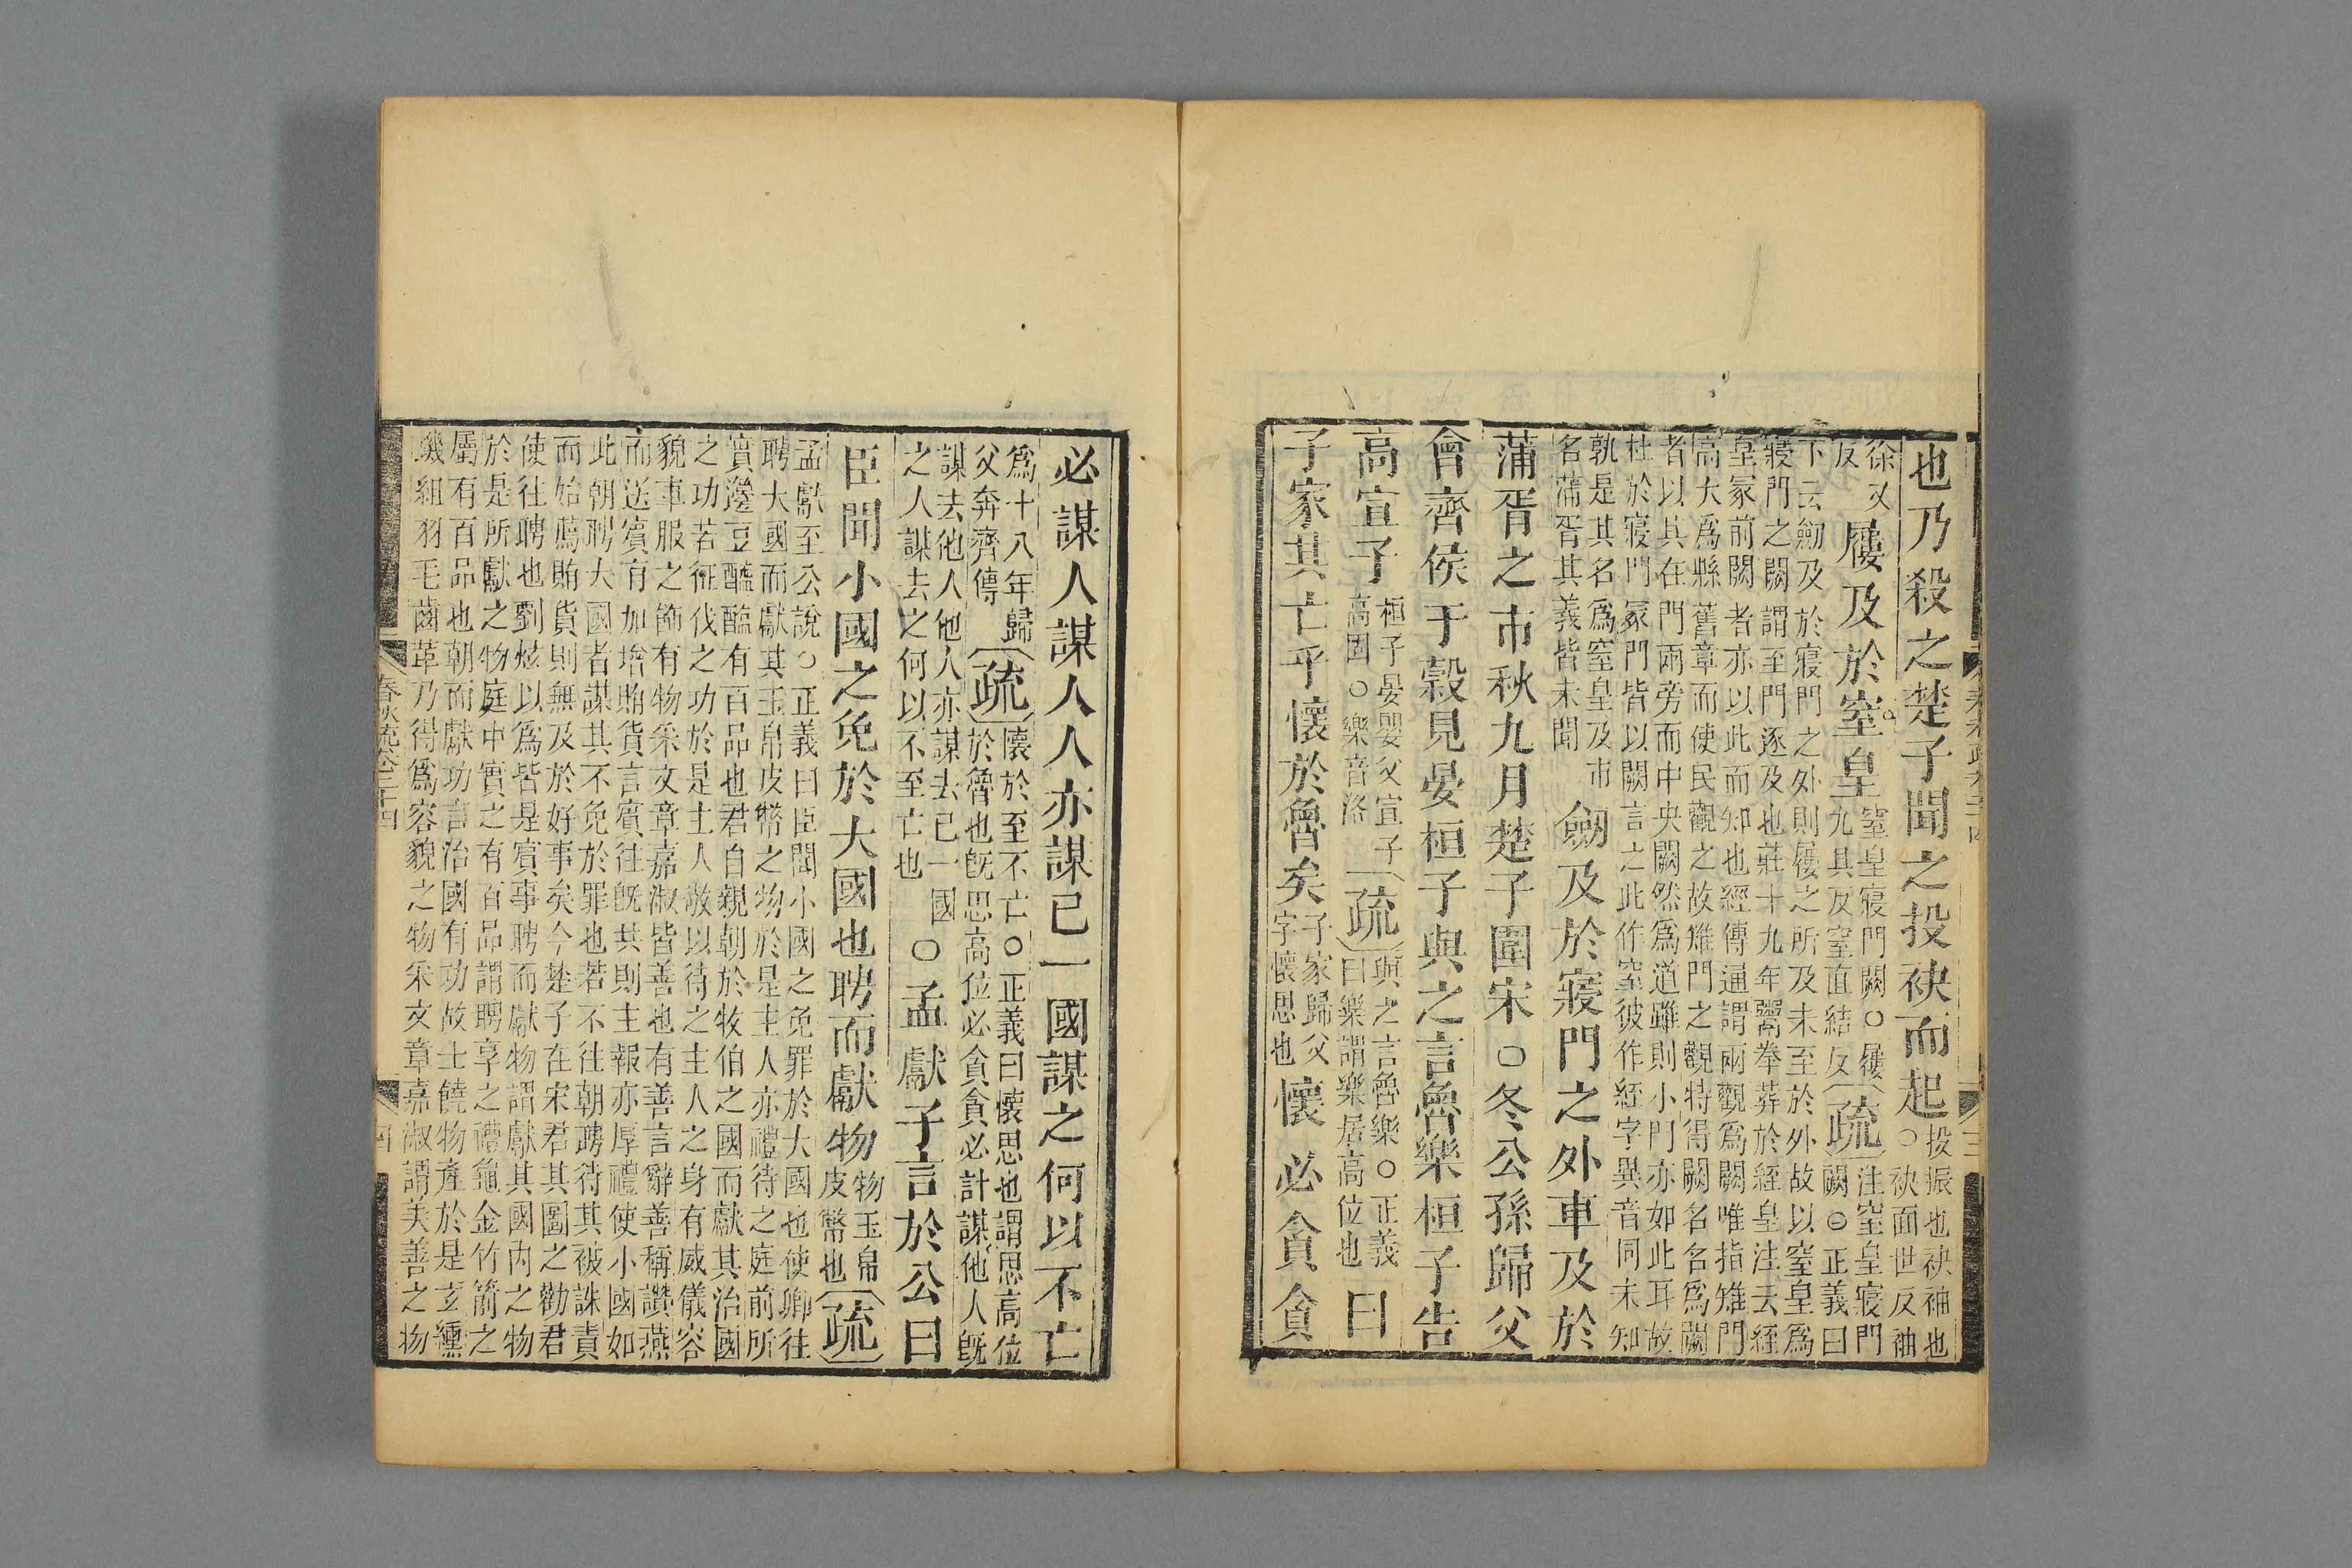 也乃殺之楚子聞之投袂而起投振也袂袖也○袂面世反袖
徐又反屨及於窒皇窒皇寢門闕○屨九具反窒直結反疏注窒皇寢門闕○正義曰
下云劒及於寢門之外則屨之所及未至於外故以窒皇爲
寢門之闕謂至門逐及也莊十九年鬻拳葬於絰皇注云絰
皇冢前闕者亦以此而知也經傳通謂兩觀爲闕唯指雉門
高大爲縣舊章而使民觀之故雉門之觀特得闕名名爲闕
者以其在門兩旁而中央闕然爲道雖則小門亦如此耳故
杜於寢門冢門皆以闕言之此作窒彼作絰字異音同未知
孰是其名爲窒皇及市名蒲胥其義皆未聞劒及於寢門之外車及於
蒲胥之市秋九月楚子圍宋○冬公孫歸父
會齊侯于穀見晏桓子與之言魯樂桓子告
高宣子桓子晏嬰父宣子高固○樂音洛疏與之言魯樂○正義曰樂謂樂居高位也曰
子家其亡乎懷於魯矣子家歸父字懷思也懷必貪貪
必謀人謀人人亦謀已一國謀之何以不亡
爲十八年歸父奔齊傳疏懷於至不亡○正義曰懷思也謂思高位於魯也旣思高位必貪貪必計謀他人旣
謀去他人他人亦謀去已一國之人謀去之何以不至亡也○孟獻子言於公曰
臣聞小國之免於大國也聘而獻物物玉帛皮幣也疏
孟獻至公說○正義曰臣聞小國之免罪於大國也使卿往
聘大國而獻其玉帛皮幣之物於是主人亦禮待之庭前所
實籩豆醯醢有百品也君自親朝於牧伯之國而獻其治國
之功若征伐之功於是主人敬以待之主人之身有威儀容
貌車服之飾有物采文章嘉淑皆善也有善言辭善稱讚燕
而送賓有加增賄貨言賓往旣共則主報亦厚禮使小國如
此朝聘大國者謀其不免於罪也若不往朝聘待其被誅責
而始薦賄貨則無及於好事矣今楚子在宋君其圖之勸君
使往聘也劉炫以爲皆是賓事聘而獻物謂獻其國內之物
於是所獻之物庭中實之有百品謂聘享之禮龜金竹箭之
屬有百品也朝而獻功言治國有功故土饒物產於是玄纁
璣組羽毛齒革乃得爲容貌之物采文章嘉淑謂美善之物
春秋疏卷二十四
四